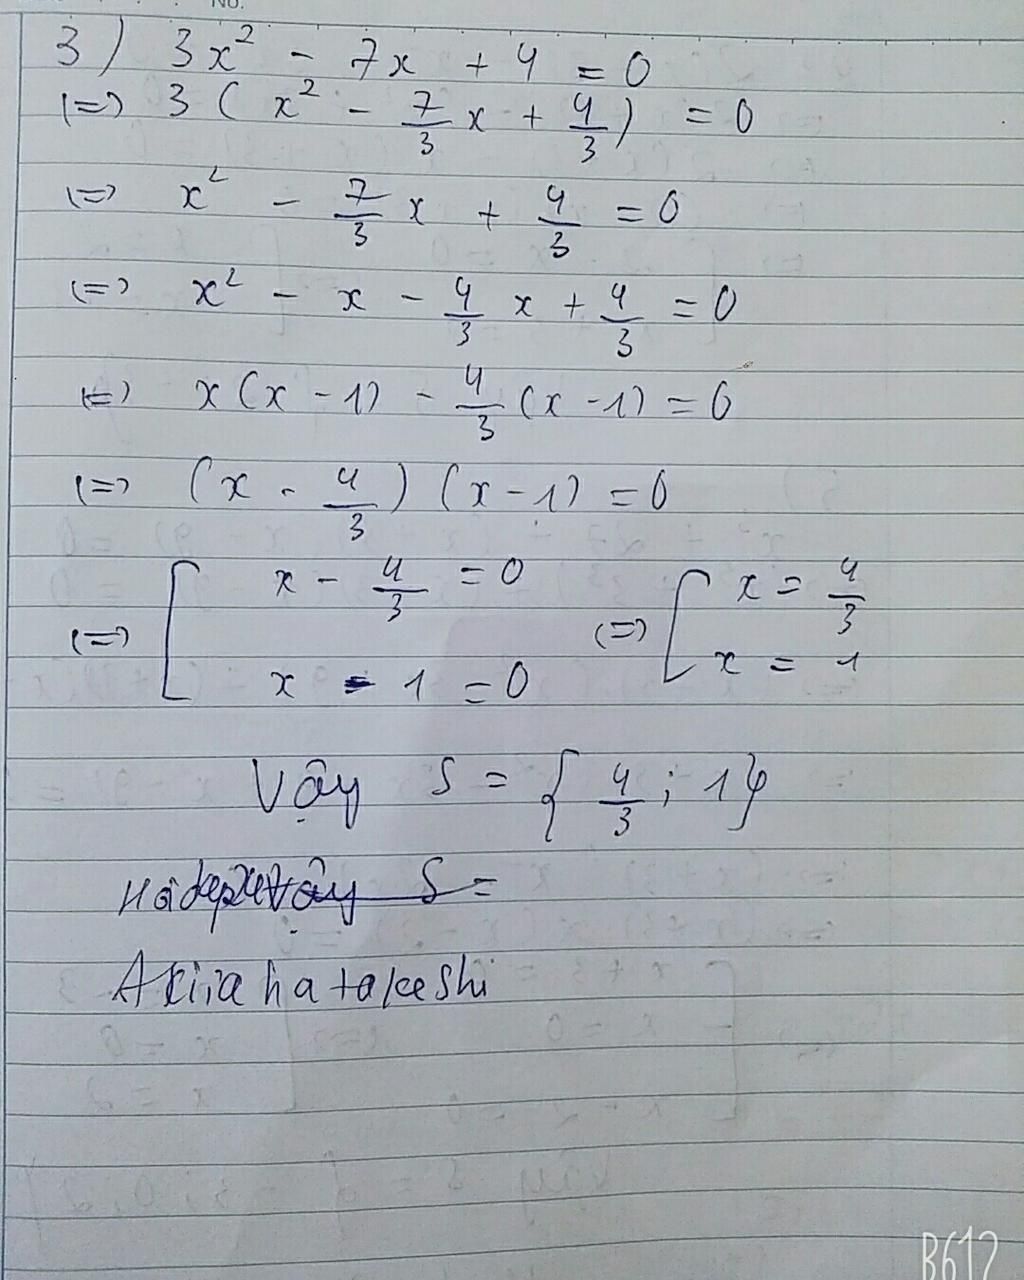 No.
3) 3x² - 7x + 4 = 0
(=) 3 ( x² - 7/3 x + 4/3 ) = 0
(=) x² - 7/3 x + 4/3 = 0
(=) x² - x - 4/3 x + 4/3 = 0
(=) x (x - 1) - 4/3 (x - 1) = 0
(=) (x - 4/3) (x - 1) = 0
(=) [ x - 4/3 = 0 (=) [ x = 4/3
x - 1 = 0 x = 1
Vậy S = { 4/3 ; 1 }
Vậy S =
hatakeshi
B612